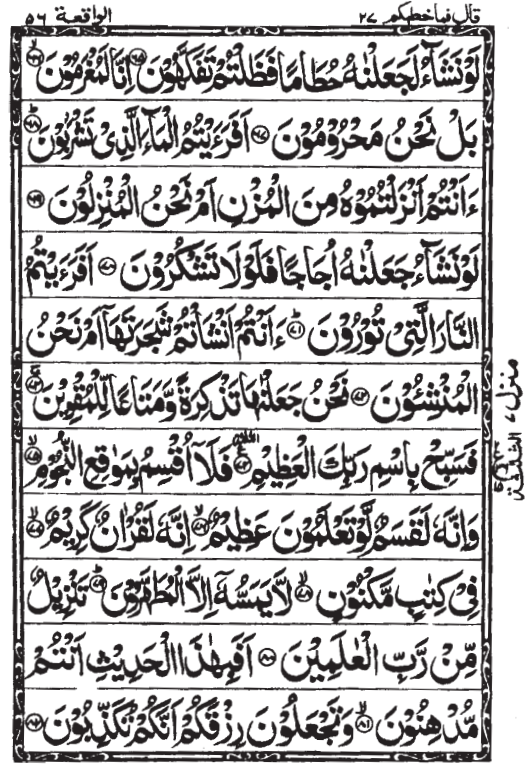 قال فما خطبكم ٢٧
الواقعة ٥٦
لَوْ نَشَآءُ لَجَعَلْنٰهُ حُطَامًا فَظَلْتُمْ تَفَكَّهُوْنَ ﴿٦٥﴾ اِنَّا لَمُغْرَمُوْنَ ﴿٦٦﴾
بَلْ نَحْنُ مَحْرُوْمُوْنَ ﴿٦٧﴾ اَفَرَءَيْتُمُ الْمَآءَ الَّذِىْ تَشْرَبُوْنَ ﴿٦٨﴾
ءَاَنْتُمْ اَنْزَلْتُمُوْهُ مِنَ الْمُزْنِ اَمْ نَحْنُ الْمُنْزِلُوْنَ ﴿٦٩﴾
لَوْ نَشَآءُ جَعَلْنٰهُ اُجَاجًا فَلَوْلَا تَشْكُرُوْنَ ﴿٧٠﴾ اَفَرَءَيْتُمُ
النَّارَ الَّتِىْ تُوْرُوْنَ ﴿٧١﴾ ءَاَنْتُمْ اَنْشَاْتُمْ شَجَرَتَهَآ اَمْ نَحْنُ
الْمُنْشِئُوْنَ ﴿٧٢﴾ نَحْنُ جَعَلْنٰهَا تَذْكِرَةً وَّمَتَاعًا لِّلْمُقْوِيْنَ ﴿٧٣﴾
فَسَبِّحْ بِاسْمِ رَبِّكَ الْعَظِيْمِ ﴿٧٤﴾ فَلَآ اُقْسِمُ بِمَوٰقِعِ النُّجُوْمِ ﴿٧٥﴾
وَاِنَّهٗ لَقَسَمٌ لَّوْ تَعْلَمُوْنَ عَظِيْمٌ ﴿٧٦﴾ اِنَّهٗ لَقُرْاٰنٌ كَرِيْمٌ ﴿٧٧﴾
فِىْ كِتٰبٍ مَّكْنُوْنٍ ﴿٧٨﴾ لَّا يَمَسُّهٗٓ اِلَّا الْمُطَهَّرُوْنَ ﴿٧٩﴾ تَنْزِيْلٌ
مِّنْ رَّبِّ الْعٰلَمِيْنَ ﴿٨٠﴾ اَفَبِهٰذَا الْحَدِيْثِ اَنْتُمْ
مُّدْهِنُوْنَ ﴿٨١﴾ وَتَجْعَلُوْنَ رِزْقَكُمْ اَنَّكُمْ تُكَذِّبُوْنَ ﴿٨٢﴾
منزل ٧